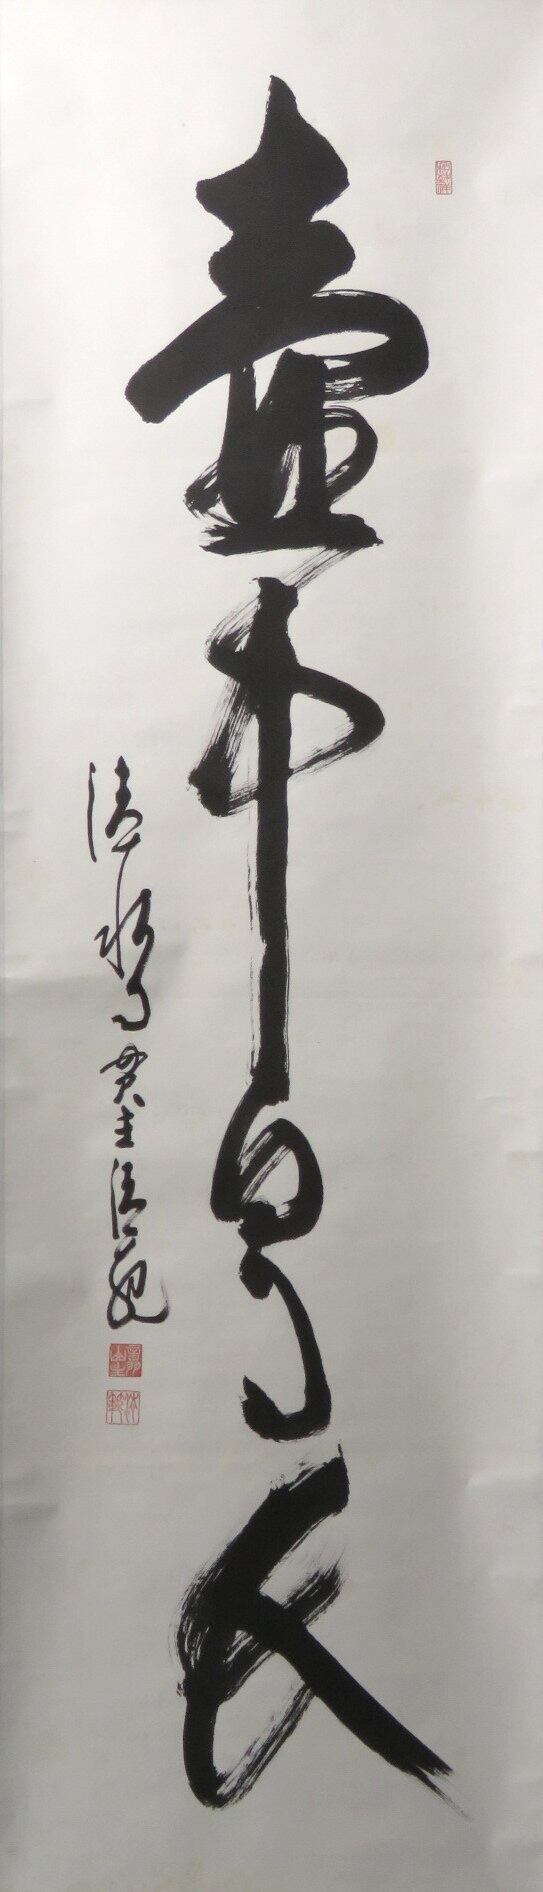 壷中日月長
清水寺貫主清範